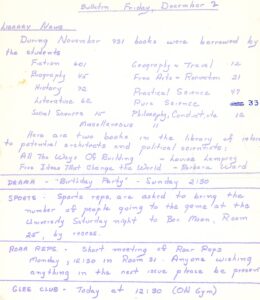 Bulletin Friday, December 2
LIBRARY NEWS
During November 731 books were borrowed by
the students
Fiction 401 Geography & Travel 12
Biography 45 Fine Arts & Recreation 21
History 72 Practical Science 47
Literature 62 Pure Science 33
Social Sciences 15 Philosophy, Conduct, etc 12
Miscellaneous 11
Here are two books in the library of interest
to potential architects and political scientists;
All The Ways Of Building - Louise Lamprey
Five Ideas That Change the World - Barbara Ward
DRAMA - "Birthday Party" - Sunday 2:30
SPORTS - Sports reps. are asked to bring the
number of people going to the game at the
University Saturday night to Bev Moon, Room
25, by recess.
ROAR REPS - Short meeting of Roar Reps
Monday, 12:30 in Room 31. Anyone wishing
anything in the next issue please be present
GLEE CLUB - Today at 12:30 (ON Gym)